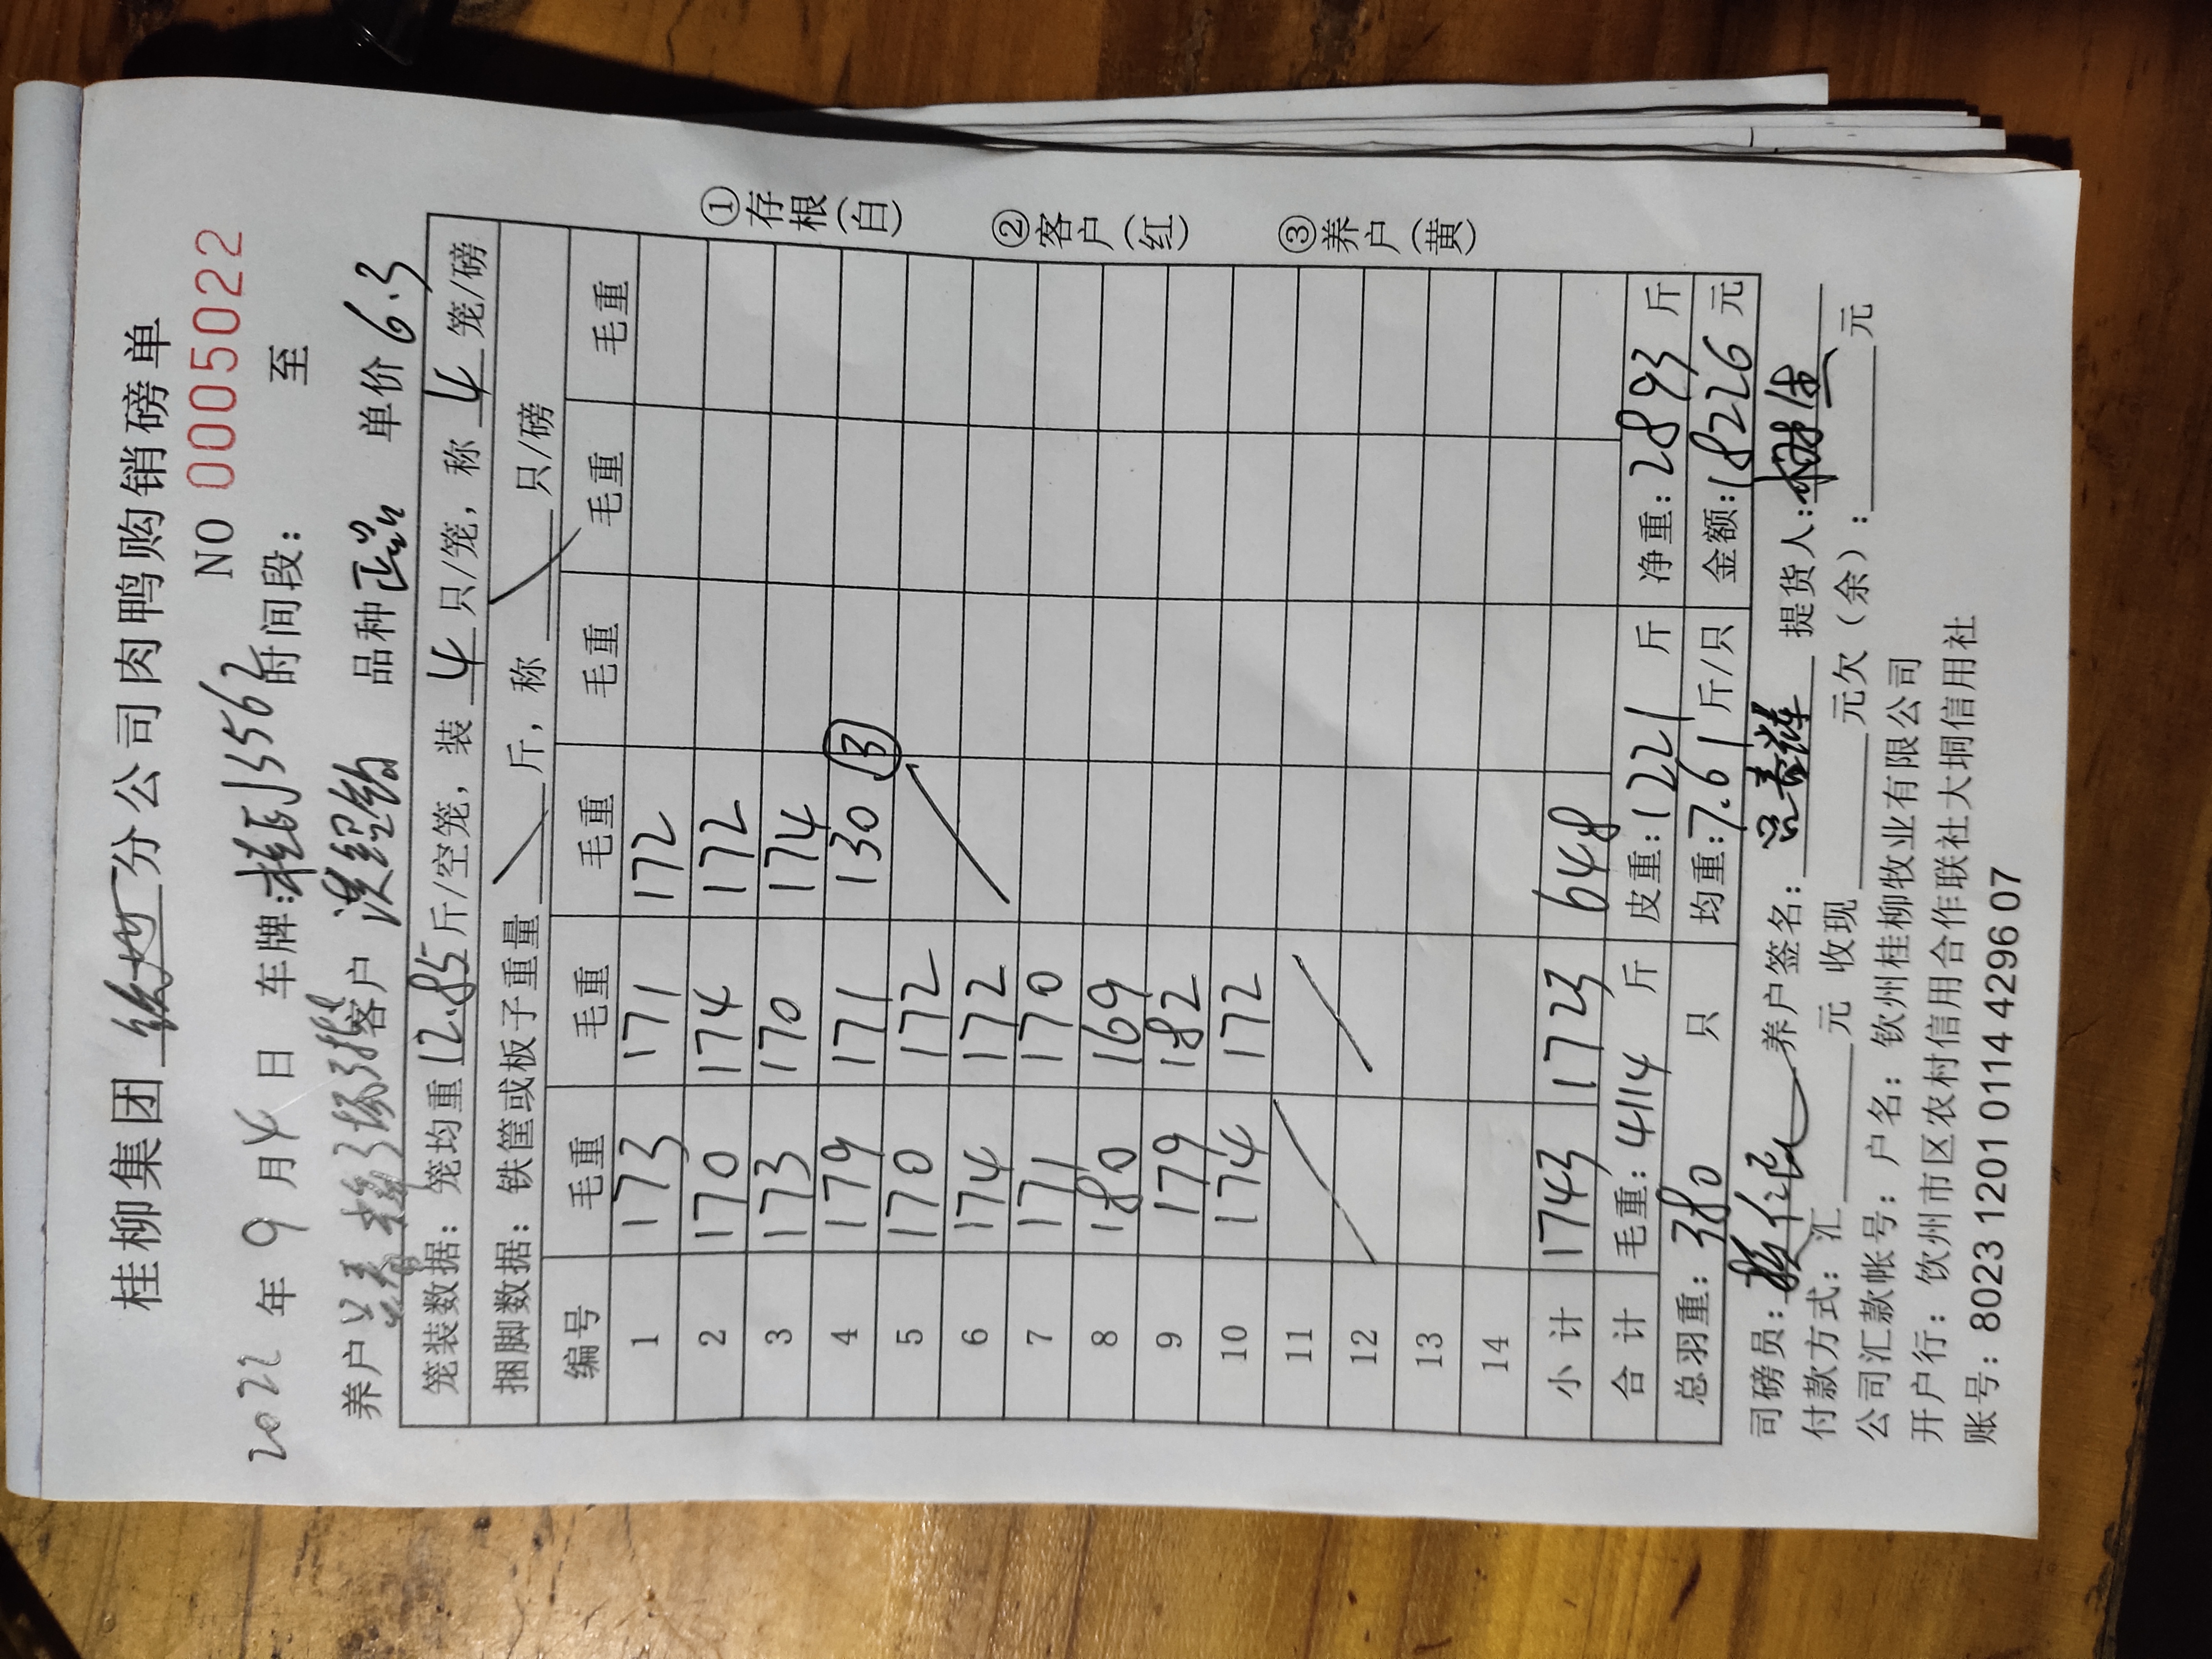 桂柳集团 分公司肉鸭购销磅单
NO 0005022
2022 年 9 月 4 日 车牌: 时间段: 至
养户 客户 品种 正品 单价 6.3
笼装数据: 笼均重 12.85 斤/空笼, 装 4 只/笼, 称 4 笼/磅
捆脚数据: 铁筐或板子重量 斤, 称 只/磅
编号 毛重 毛重 毛重 毛重 毛重 毛重
1 173 171 172
2 170 174 172
3 173 170 174
4 179 171 130 ③
5 170 172
6 174 172
7 171 170
8 180 169
9 179 182
10 174 172
11
12
13
14
小 计 1743 1723 648
合 计 毛重: 4114 斤 皮重: 1221 斤 净重: 2893 斤
总羽重: 380 只 均重: 7.61 斤/只 金额: 18226 元
司磅员: 养户签名: 提货人:
付款方式: 汇 元 收现 元欠(余): 元
公司汇款帐号: 户名: 钦州桂柳牧业有限公司
开户行: 钦州市区农村信用合作联社大垌信用社
账号: 8023 1201 0114 4296 07
①存根(白)
②客户(红)
③养户(黄)